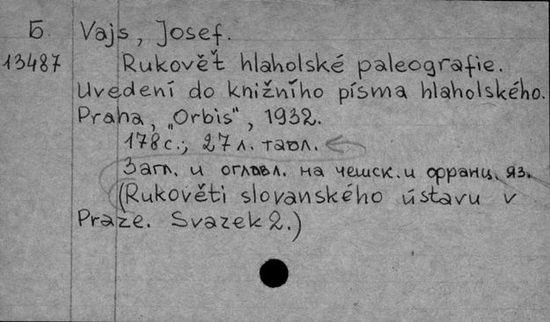 Б Vajs, Josef.
13487 Rukovět hlaholské paleografie.
Uvedení do knižního písma hlaholského.
Praha, „Orbis", 1932.
178 с.; 27 л. табл.
Загл. и оглавл. на чешск. и франц. яз.
(Rukověti slovanského ústavu v
Praze. Svazek 2.)